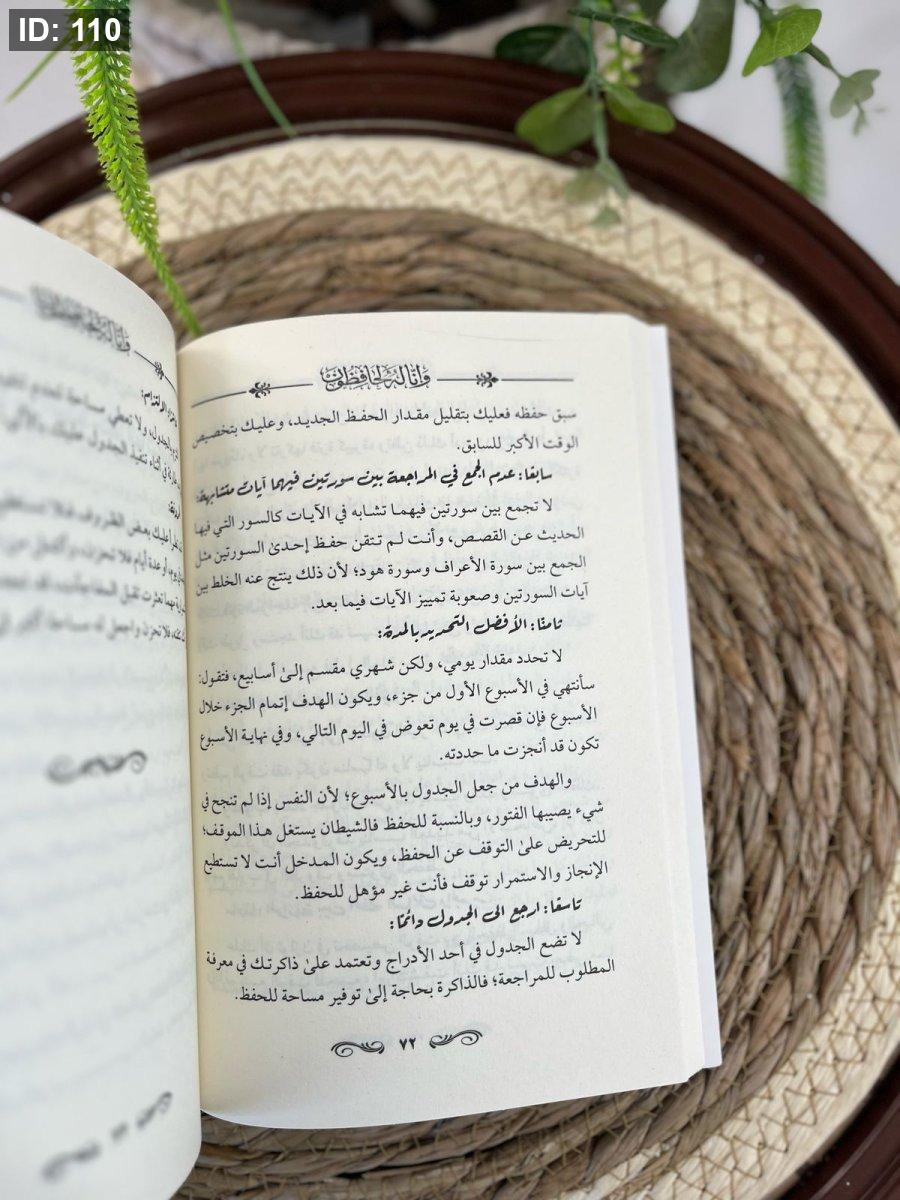 ID: 110
وإنا له لحافظون
سبق حفظه فعليك بتقليل مقدار الحفظ الجديد، وعليك بتخصيص
الوقت الأكبر للسابق.
سابعًا: عدم الجمع في المراجعة بين سورتين فيهما آيات متشابهة:
لا تجمع بين سورتين فيهما تشابه في الآيات كالسور التي فيها
الحديث عن القصص، وأنت لم تتقن حفظ إحدىٰ السورتين مثل
الجمع بين سورة الأعراف وسورة هود؛ لأن ذلك ينتج عنه الخلط بين
آيات السورتين وصعوبة تمييز الآيات فيما بعد.
ثامنًا: الأفضل التحديد بالمدة:
لا تحدد مقدار يومي، ولكن شهري مقسم إلىٰ أسابيع، فتقول:
سأنتهي في الأسبوع الأول من جزء، ويكون الهدف إتمام الجزء خلال
الأسبوع فإن قصرت في يوم تعوض في اليوم التالي، وفي نهاية الأسبوع
تكون قد أنجزت ما حددته.
والهدف من جعل الجدول بالأسبوع؛ لأن النفس إذا لم تنجح في
شيء يصيبها الفتور، وبالنسبة للحفظ فالشيطان يستغل هذا الموقف؛
للتحريض علىٰ التوقف عن الحفظ، ويكون المدخل أنت لا تستطيع
الإنجاز والاستمرار توقف فأنت غير مؤهل للحفظ.
تاسعًا: ارجع الى الجدول دائمًا:
لا تضع الجدول في أحد الأدراج وتعتمد علىٰ ذاكرتك في معرفة
المطلوب للمراجعة؛ فالذاكرة بحاجة إلىٰ توفير مساحة للحفظ.
٧٢